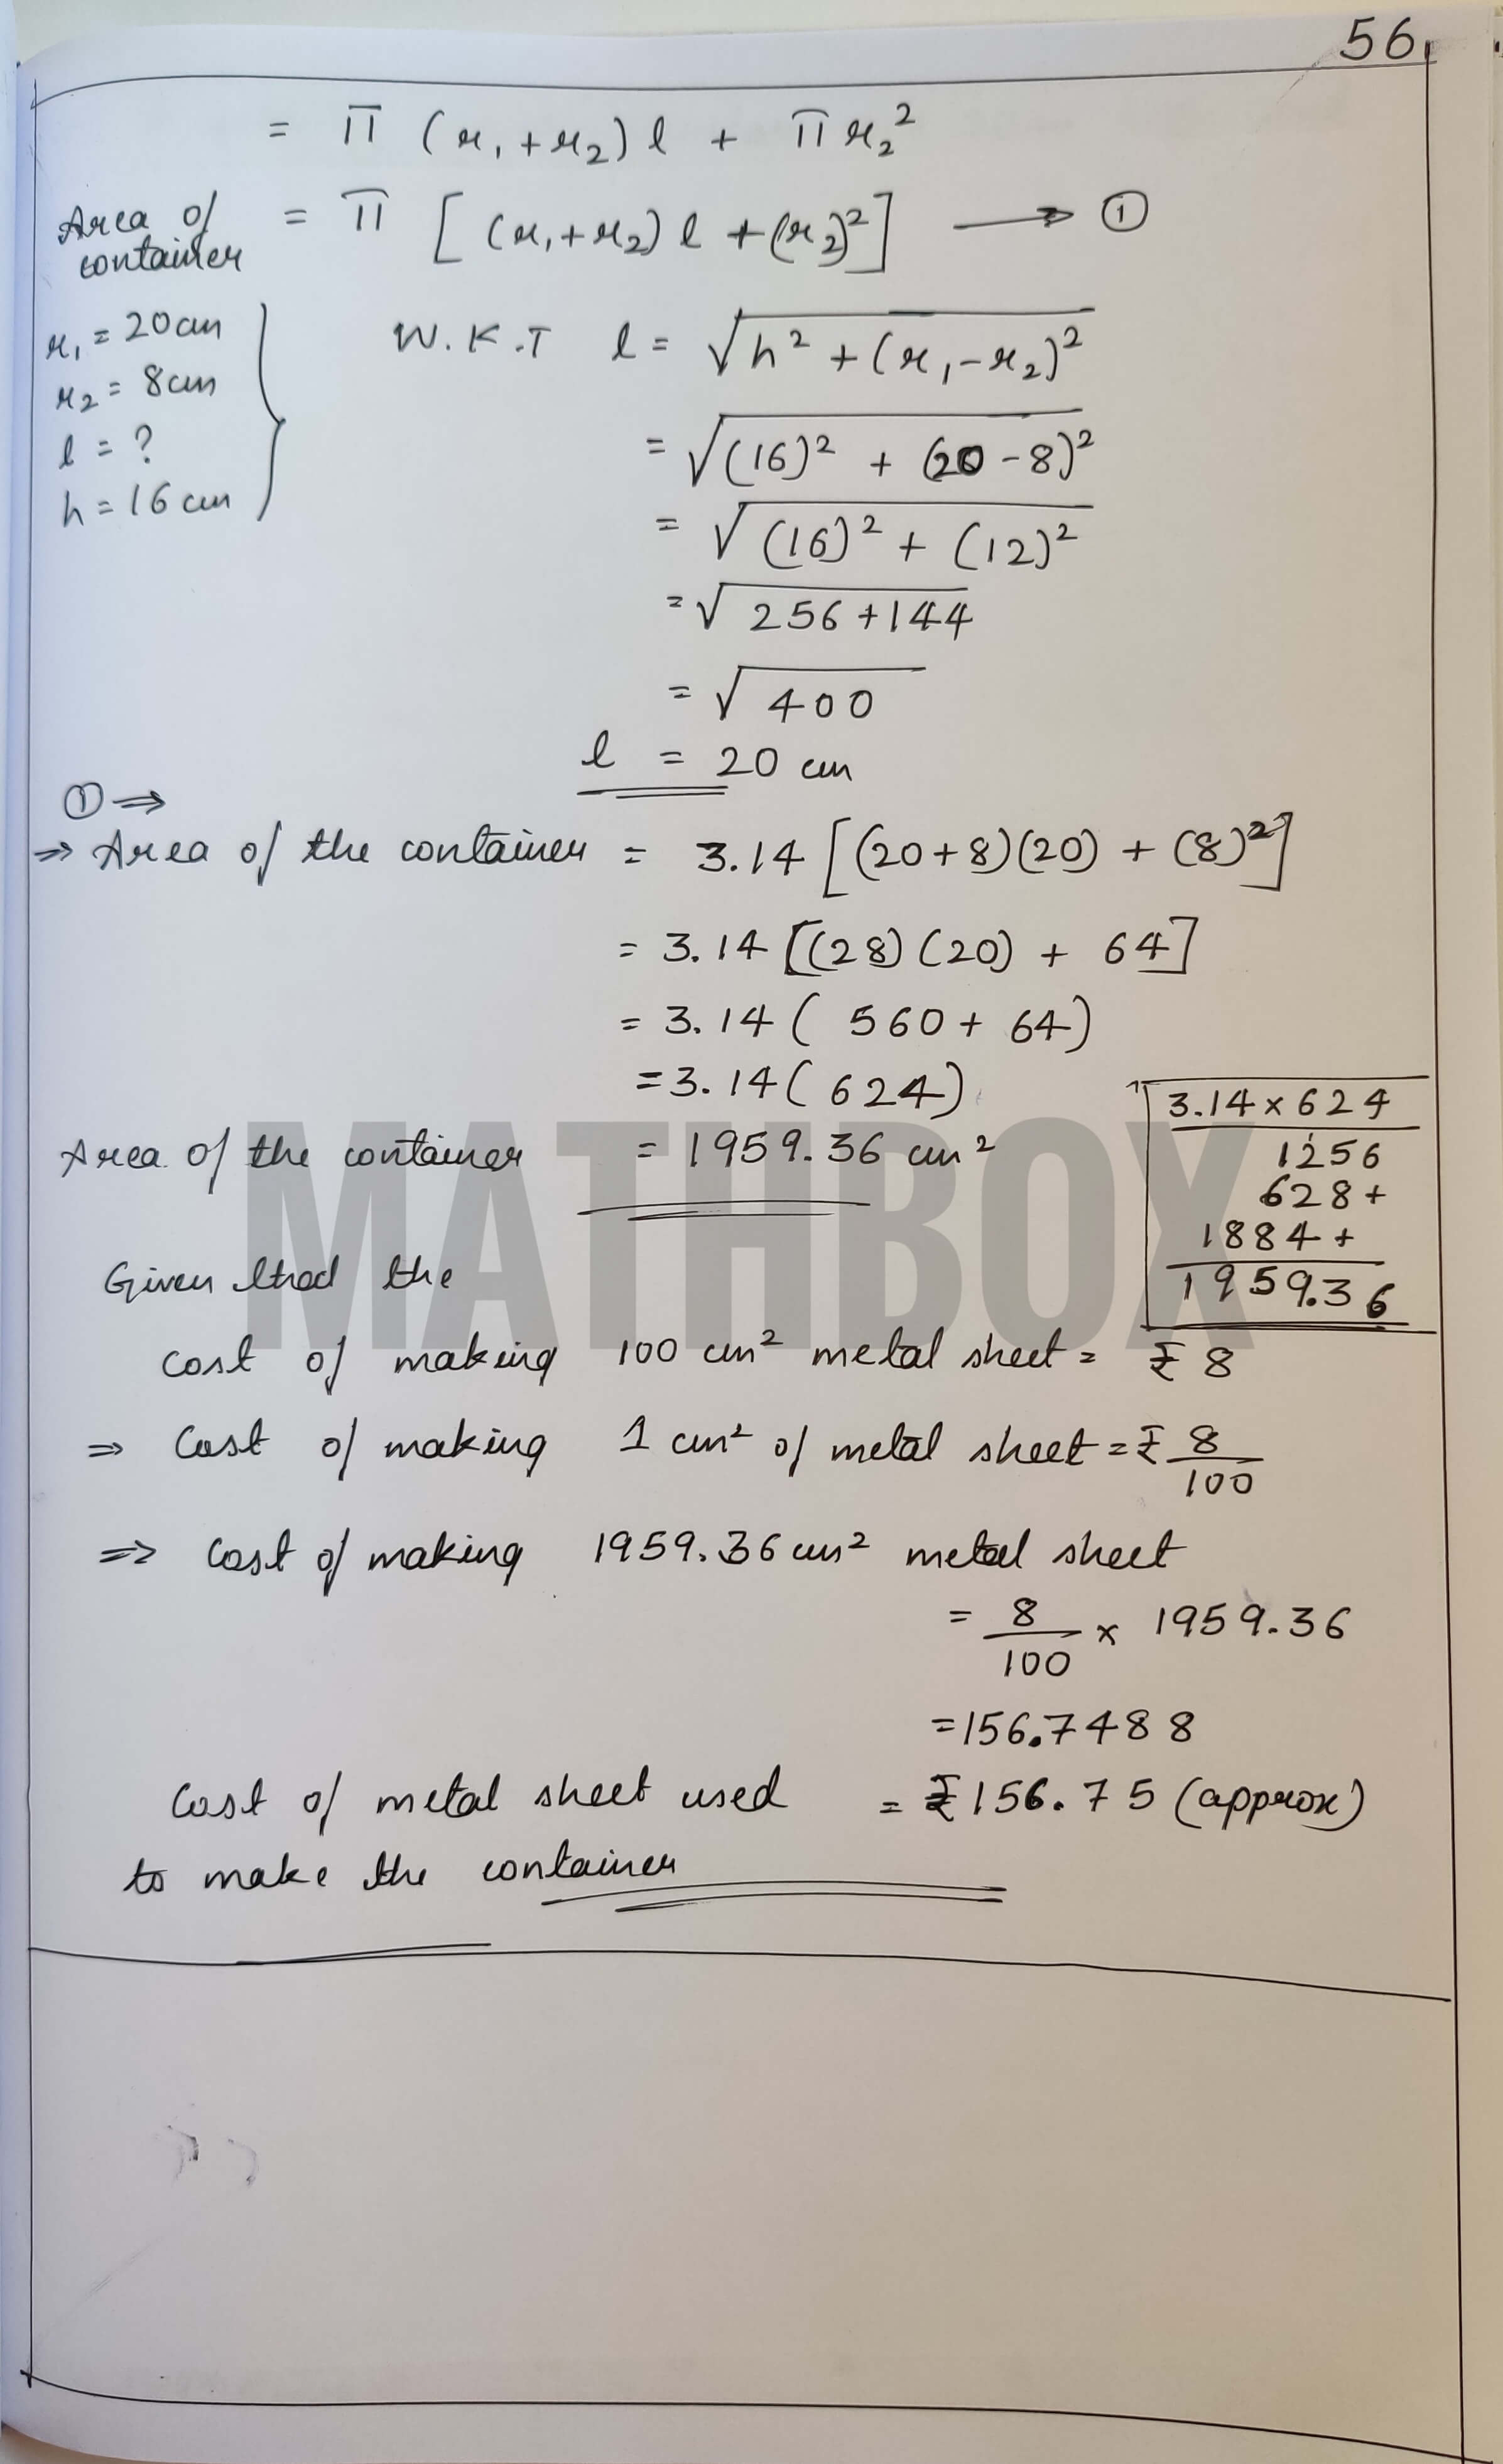 56
= π (r₁+r₂) l + π r₂²
Area of container = π [(r₁+r₂) l + (r₂)²] → ①
r₁ = 20cm
r₂ = 8cm
l = ?
h = 16 cm
W.K.T l = √h² + (r₁-r₂)²
= √(16)² + (20-8)²
= √(16)² + (12)²
= √256+144
= √400
l = 20 cm
① ⇒
⇒ Area of the container = 3.14 [(20+8)(20) + (8)²]
= 3.14 [(28)(20) + 64]
= 3.14 ( 560 + 64)
= 3.14 ( 624)
Area of the container = 1959.36 cm²
3.14 x 624
1256
628+
1884+
1959.36
MATHBOX
Given that the
cost of making 100 cm² metal sheet = ₹ 8
⇒ Cost of making 1 cm² of metal sheet = ₹ 8/100
⇒ Cost of making 1959.36 cm² metal sheet
= 8/100 x 1959.36
= 156.7488
Cost of metal sheet used = ₹156.75 (approx)
to make the container